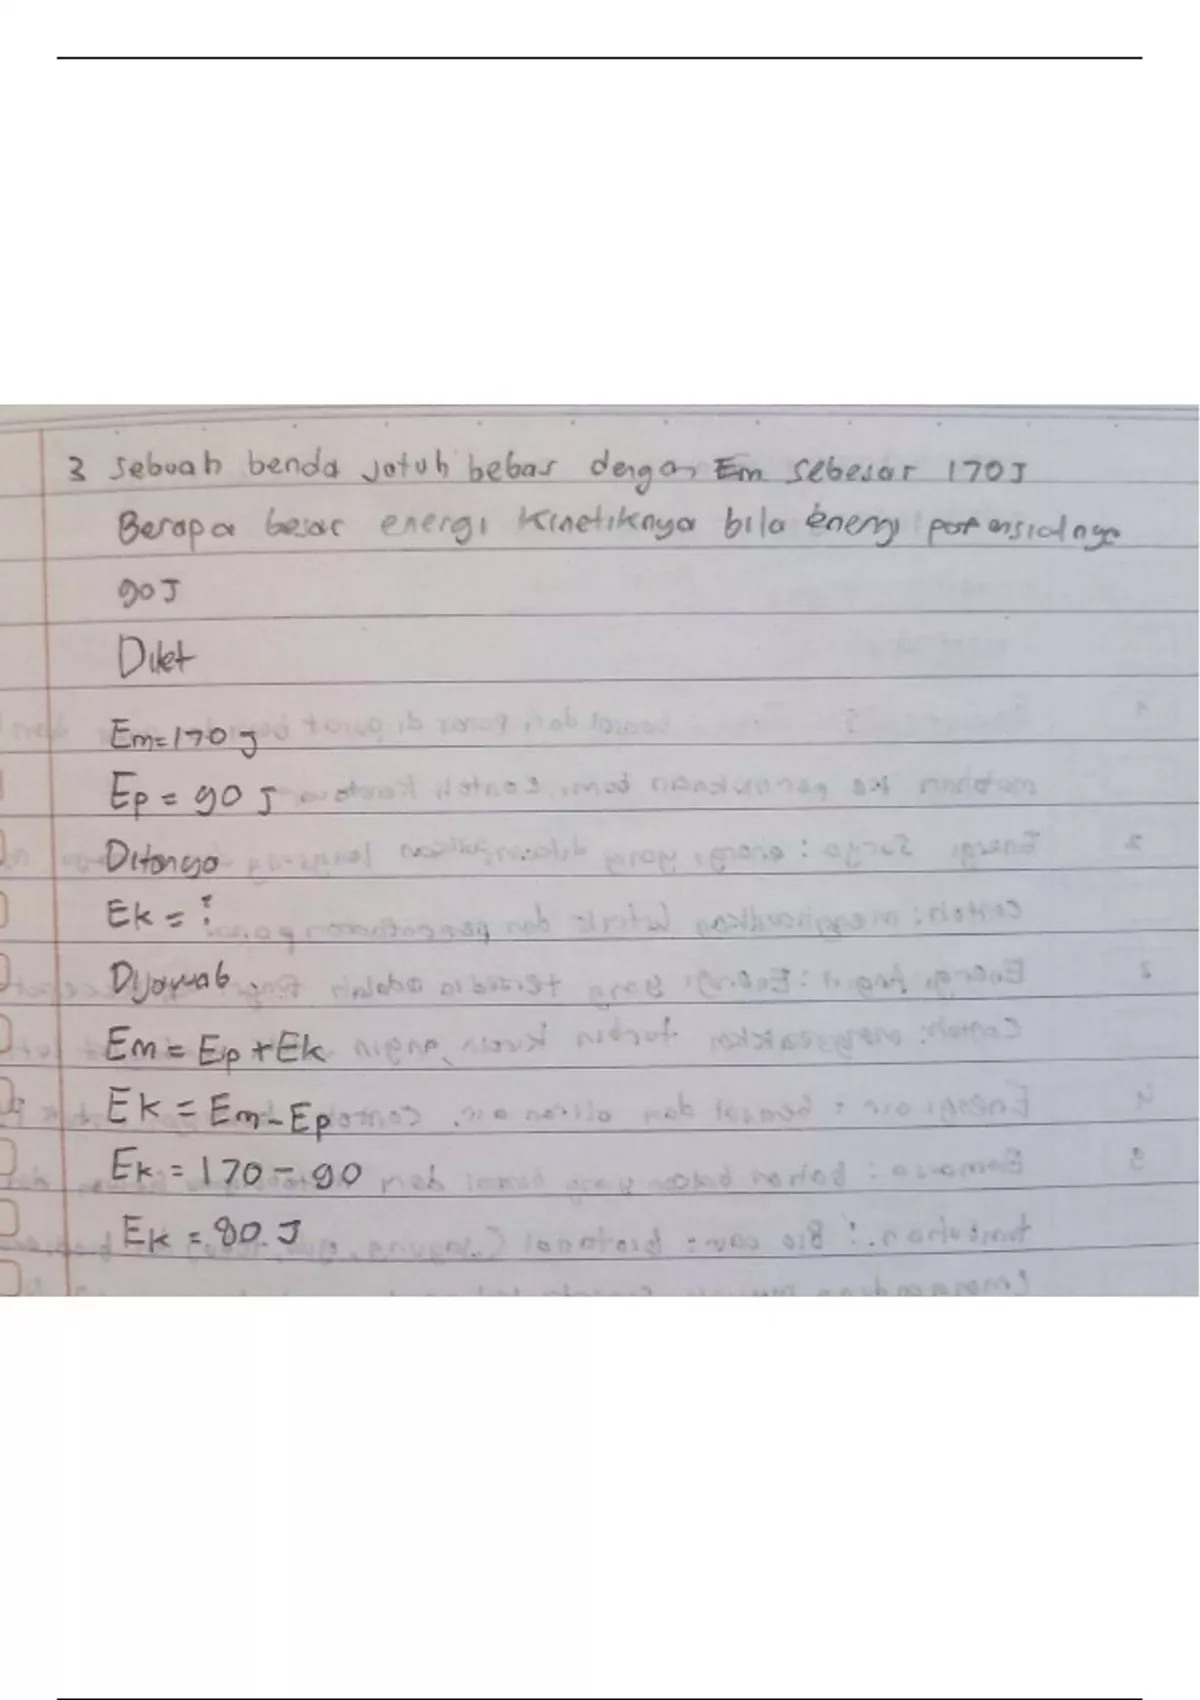 3 Sebuah benda jatuh bebas dengan Em sebesar 170 J
Berapa besar energi kinetiknya bila energi potensialnya
90 J
Diket
Em = 170 J
Ep = 90 J
Ditanya
Ek = ?
Dijawab
Em = Ep + Ek
Ek = Em - Ep
Ek = 170 - 90
Ek = 80 J